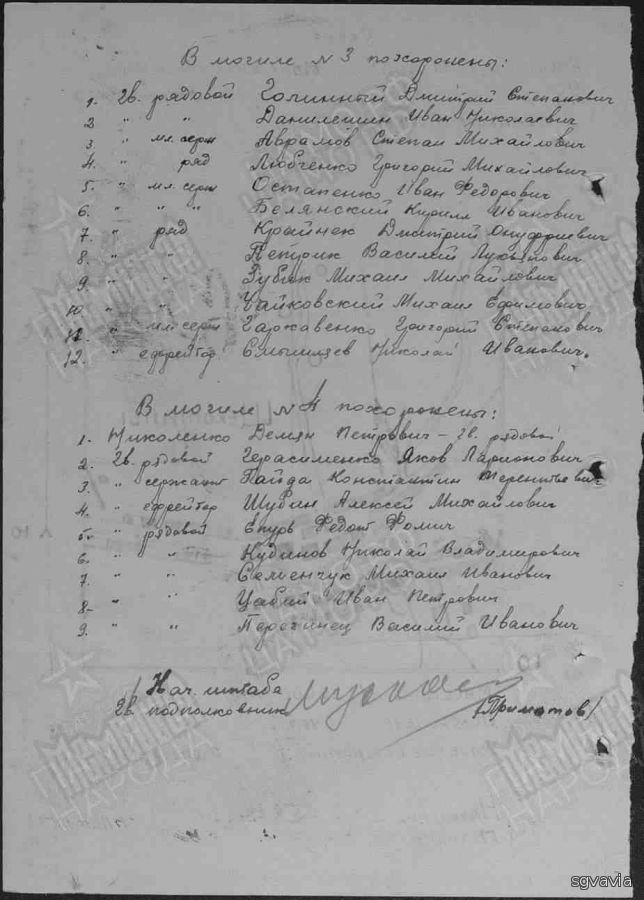 В могиле №3 похоронены:
1. Гв. рядовой Голинный Дмитрий Степанович
2 " " Данилешин Иван Николаевич
3. " мл. серж Аврамов Степан Михайлович
4. " ряд Любченко Григорий Михайлович
5. " мл. серж Остапенко Иван Федорович
6. " " " Белянский Кирилл Иванович
7. " ряд Крайнек Дмитрий Онуфриевич
8. " " Петрик Василий Лукьянович
9 " " Зубик Михаил Михайлович
10. " " Чайковский Михаил Ефимович
11. " мл. серж Гаржавенко Григорий Степанович
12. " ефрейтор Николай Иванович.
В могиле №4 похоронены:
1. Николенко Демян Петрович - Гв. рядовой
2. Гв. рядовой Герасименко Яков Ларионович
3. " сержант Гайда Константин Терентьевич
4. " ефрейтор Шубан Алексей Михайлович
5. " рядовой Епурь Федот Фомич
6. " " Кудинов Николай Владимирович
7. " " Семенчук Михаил Иванович
8- " " Цабий Иван Петрович
9. " " Василий Иванович
/ Нач. штаба
Гв. подполковник /Приматов/
ПАМЯТЬ НАРОДА
sgvavia